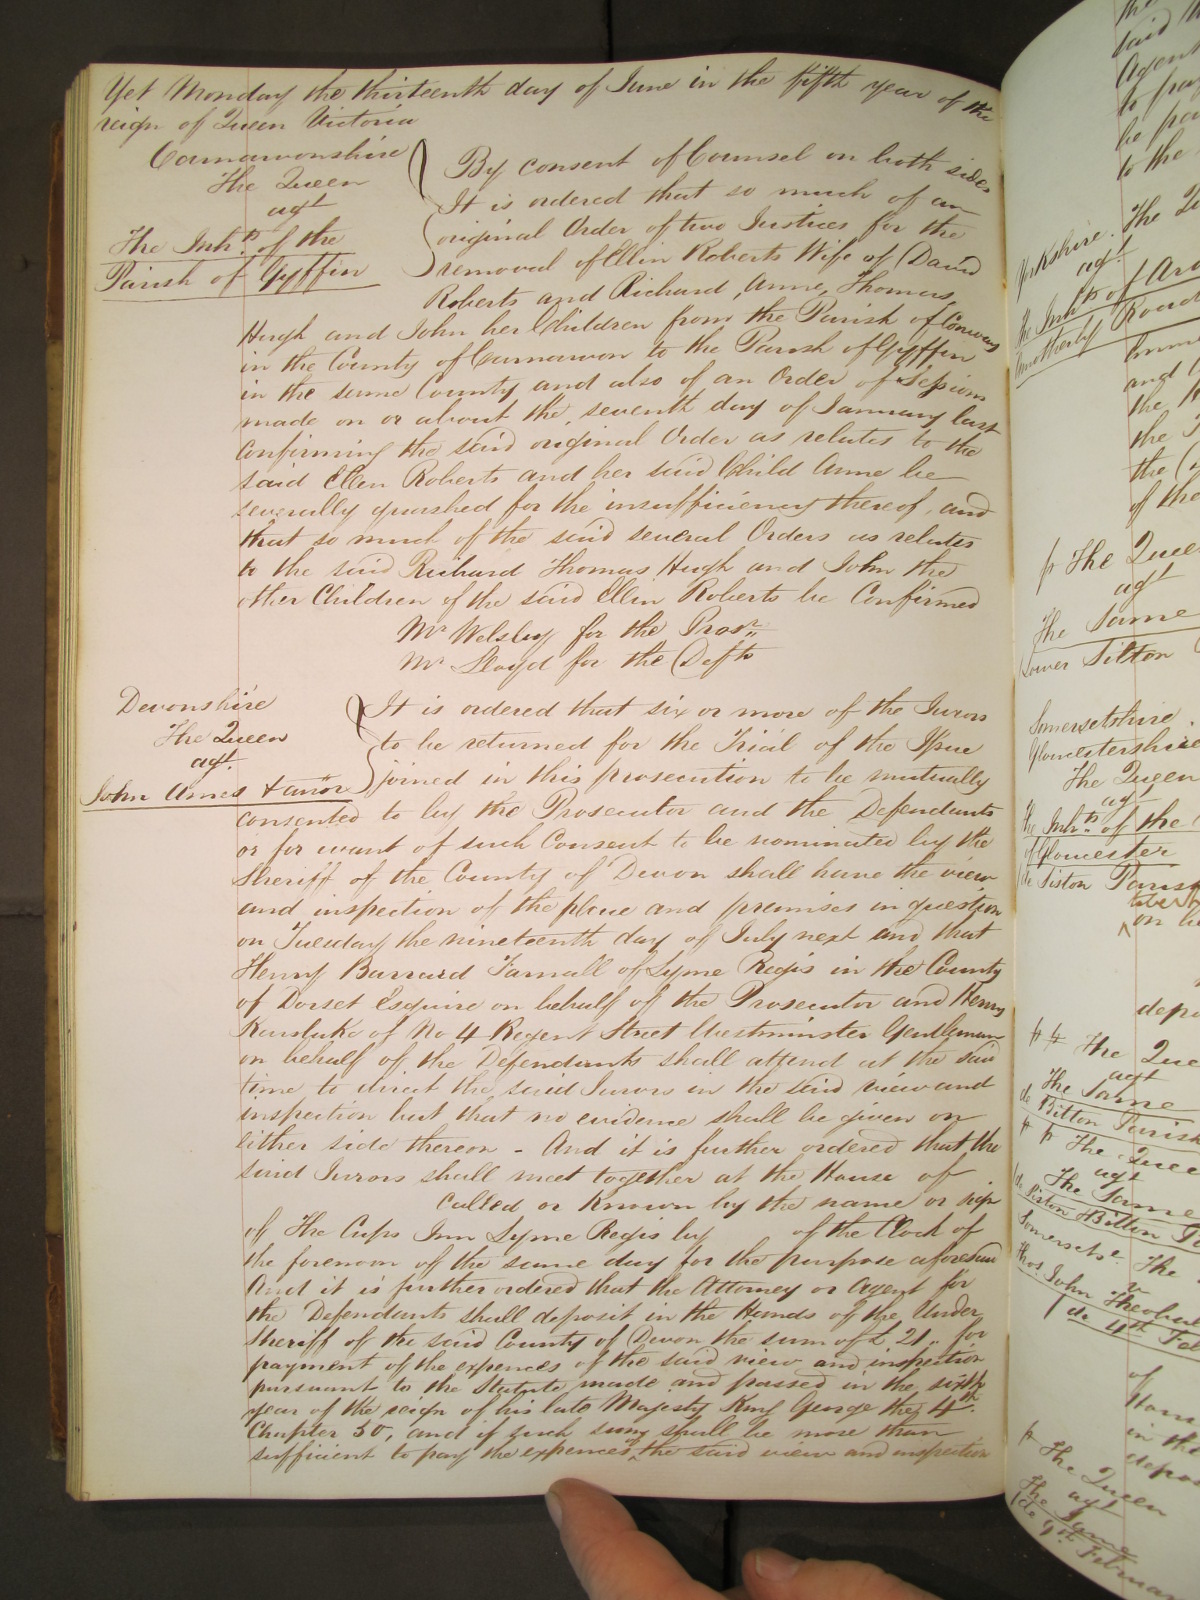 Yet Monday the thirteenth day of June in the fifth year of the
reign of Queen Victoria
Carnarvonshire
The Queen
agt
The Inhts. of the
Parish of Gyffin
By consent of Counsel on both sides
It is ordered that so much of an
original Order of two Justices for the
removal of Ellin Roberts Wife of David
Roberts and Richard, Anne, Thomas,
Hugh and John her Children from the Parish of Conway
in the County of Carnarvon to the Parish of Gyffin
in the same County and also of an Order of Sessions
made on or about the seventh day of January last
Confirming the said original Order as relates to the
said Ellen Roberts and her said Child Anne be
severally quashed for the insufficiency thereof, and
that so much of the said several Orders as relates
to the said Richard Thomas Hugh and John the
other Children of the said Ellin Roberts be Confirmed
Mr Welsby for the Prosr.
Mr Lloyd for the Defts
Devonshire
The Queen
agt.
John Ames & anor
It is ordered that six or more of the Jurors
to be returned for the Trial of the Issue
joined in this prosecution to be mutually
consented to by the Prosecutor and the Defendants
or for want of such Consent to be nominated by the
Sheriff of the County of Devon shall have the view
and inspection of the place and premises in question
on Tuesday the nineteenth day of July next and that
Henry Barrard Farnall of Lyme Regis in the County
of Dorset Esquire on behalf of the Prosecutor and Henry
Karslake of No 4 Regent Street Westminster Gentleman
on behalf of the Defendants shall attend at the said
time to direct the said Jurors in the said view and
inspection but that no evidence shall be given on
either side thereon - And it is further ordered that the
said Jurors shall meet together at the House of
called or known by the name or sign
of The Cups Inn Lyme Regis by of the Clock of
the forenoon of the same day for the purpose aforesaid
And it is further ordered that the Attorney or Agent for
the Defendants shall deposit in the Hands of the Under
Sheriff of the said County of Devon the sum of £ 21.. for
payment of the expences of the said view and inspection
pursuant to the Statute made and passed in the sixth
year of the reign of his late Majesty King George the 4th.
Chapter 50, and if such sum shall be more than
sufficient to pay the expences of the said view and inspection
the
said
Agent
to pay
be pa
to the
Yorkshire. The
agt.
the Inhts of
Road
and
the
the
the
of the
The Quee
agt
The Same
Lower Sitton
Somersetshire
Gloucestershire
The Queen
agt
the Inhts. of the
of Gloucester
de Siston Parish
on
depo
The Quee
agt
The Same
de Bitton Parish
The Quee
agt
The Same
de Siston Bitton
Somersetsh. The
v
Thos John Theobal
(de 4th Fe
of
in the
depo
The Queen
agt
The Same
(de 9th. Februar